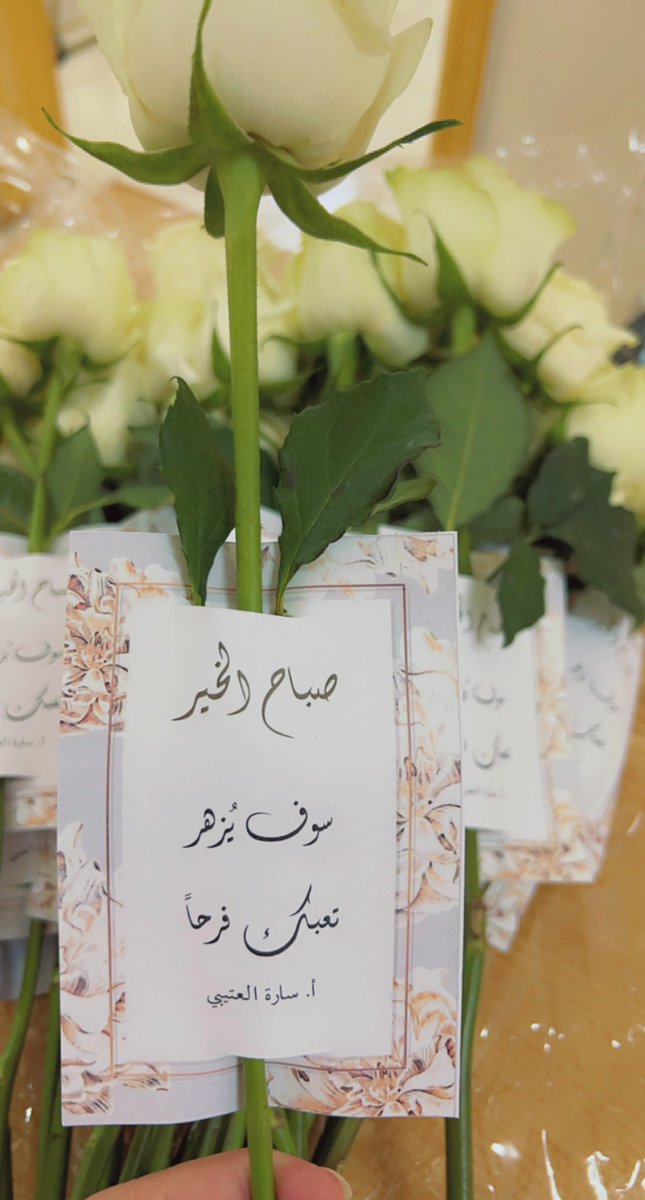 صباح الخير
سوف يُزهر
تعبك فرحاً
أ. سارة العتيبي